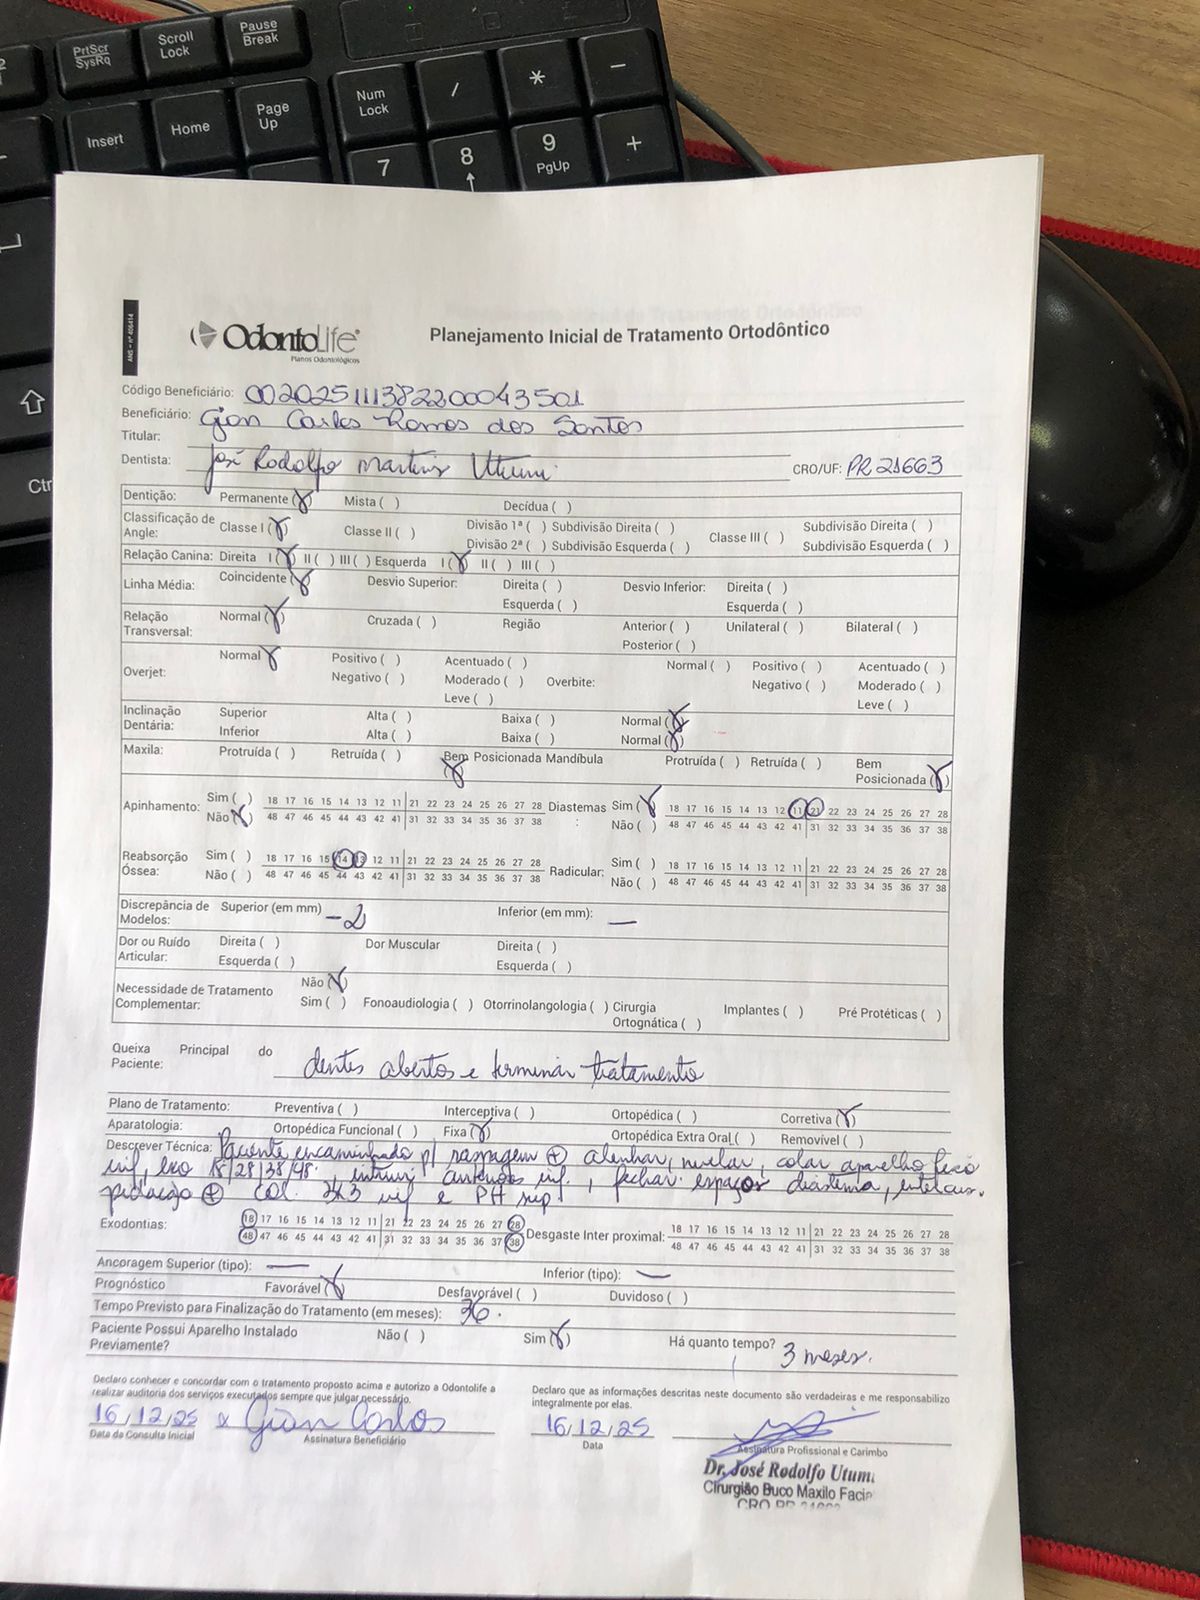 PrtScr
SysRq
Scroll
Lock
Pause
Break
Insert
Home
Page
Up
Num
Lock
/
*
-
7
8
9
PgUp
+
Ctr
ANS - nº 406414
OdontoLife
Planos Odontológicos
Planejamento Inicial de Tratamento Ortodôntico
Código Beneficiário: 002025111382200043501
Beneficiário: Gian Carlos Ramos dos Santos
Titular:
Dentista: José Rodolfo Martins Utumi CRO/UF: PR 21663
Dentição: Permanente (X) Mista ( ) Decídua ( )
Classificação de Angle: Classe I (X) Classe II ( ) Divisão 1ª ( ) Subdivisão Direita ( ) Divisão 2ª ( ) Subdivisão Esquerda ( ) Classe III ( ) Subdivisão Direita ( ) Subdivisão Esquerda ( )
Relação Canina: Direita I (X) II ( ) III ( ) Esquerda I (X) II ( ) III ( )
Linha Média: Coincidente (X) Desvio Superior: Direita ( ) Esquerda ( ) Desvio Inferior: Direita ( ) Esquerda ( )
Relação Transversal: Normal (X) Cruzada ( ) Região Anterior ( ) Posterior ( ) Unilateral ( ) Bilateral ( )
Overjet: Normal X Positivo ( ) Negativo ( ) Acentuado ( ) Moderado ( ) Leve ( ) Overbite: Normal ( ) Positivo ( ) Negativo ( ) Acentuado ( ) Moderado ( ) Leve ( )
Inclinação Dentária: Superior Alta ( ) Baixa ( ) Normal (X)
Inferior Alta ( ) Baixa ( ) Normal (X)
Maxila: Protruída ( ) Retruída ( ) Bem Posicionada (X) Mandíbula Protruída ( ) Retruída ( ) Bem Posicionada (X)
Apinhamento: Sim ( ) 18 17 16 15 14 13 12 11 21 22 23 24 25 26 27 28 Diastemas: Sim (X) 18 17 16 15 14 13 12 11 21 22 23 24 25 26 27 28
Não (X) 48 47 46 45 44 43 42 41 31 32 33 34 35 36 37 38 Não ( ) 48 47 46 45 44 43 42 41 31 32 33 34 35 36 37 38
Reabsorção Óssea: Sim ( ) 18 17 16 15 14 13 12 11 21 22 23 24 25 26 27 28 Radicular: Sim ( ) 18 17 16 15 14 13 12 11 21 22 23 24 25 26 27 28
Não ( ) 48 47 46 45 44 43 42 41 31 32 33 34 35 36 37 38 Não ( ) 48 47 46 45 44 43 42 41 31 32 33 34 35 36 37 38
Discrepância de Modelos: Superior (em mm) -2 Inferior (em mm): —
Dor ou Ruído Articular: Direita ( ) Esquerda ( ) Dor Muscular Direita ( ) Esquerda ( )
Necessidade de Tratamento Complementar: Não (X)
Sim ( ) Fonoaudiologia ( ) Otorrinolangologia ( ) Cirurgia Ortognática ( ) Implantes ( ) Pré Protéticas ( )
Queixa Principal do Paciente: dentes abertos e terminar tratamento
Plano de Tratamento: Preventiva ( ) Interceptiva ( ) Ortopédica ( ) Corretiva (X)
Aparatologia: Ortopédica Funcional ( ) Fixa (X) Ortopédica Extra Oral ( ) Removível ( )
Descrever Técnica: Paciente encaminhado p/ raspagem + alinhar, nivelar, colar aparelho fixo
inf, exo 18/28/38/48, intruir anteriores inf., fechar espaços diastema, intercus-
pidação + col. 3x3 inf e PH sup
Exodontias: 18 17 16 15 14 13 12 11 21 22 23 24 25 26 27 28 Desgaste Inter proximal: 18 17 16 15 14 13 12 11 21 22 23 24 25 26 27 28
48 47 46 45 44 43 42 41 31 32 33 34 35 36 37 38 48 47 46 45 44 43 42 41 31 32 33 34 35 36 37 38
Ancoragem Superior (tipo): — Inferior (tipo): —
Prognóstico Favorável (X) Desfavorável ( ) Duvidoso ( )
Tempo Previsto para Finalização do Tratamento (em meses): 36.
Paciente Possui Aparelho Instalado Previamente? Não ( ) Sim (X) Há quanto tempo? 3 meses.
Declaro conhecer e concordar com o tratamento proposto acima e autorizo a Odontolife a
realizar auditoria dos serviços executados sempre que julgar necessário.
Declaro que as informações descritas neste documento são verdadeiras e me responsabilizo
integralmente por elas.
16/12/25 x Gian Carlos 16/12/25
Data da Consulta Inicial Assinatura Beneficiário Data Assinatura Profissional e Carimbo
Dr. José Rodolfo Utumi
Cirurgião Buco Maxilo Facia
CRO PR 21663